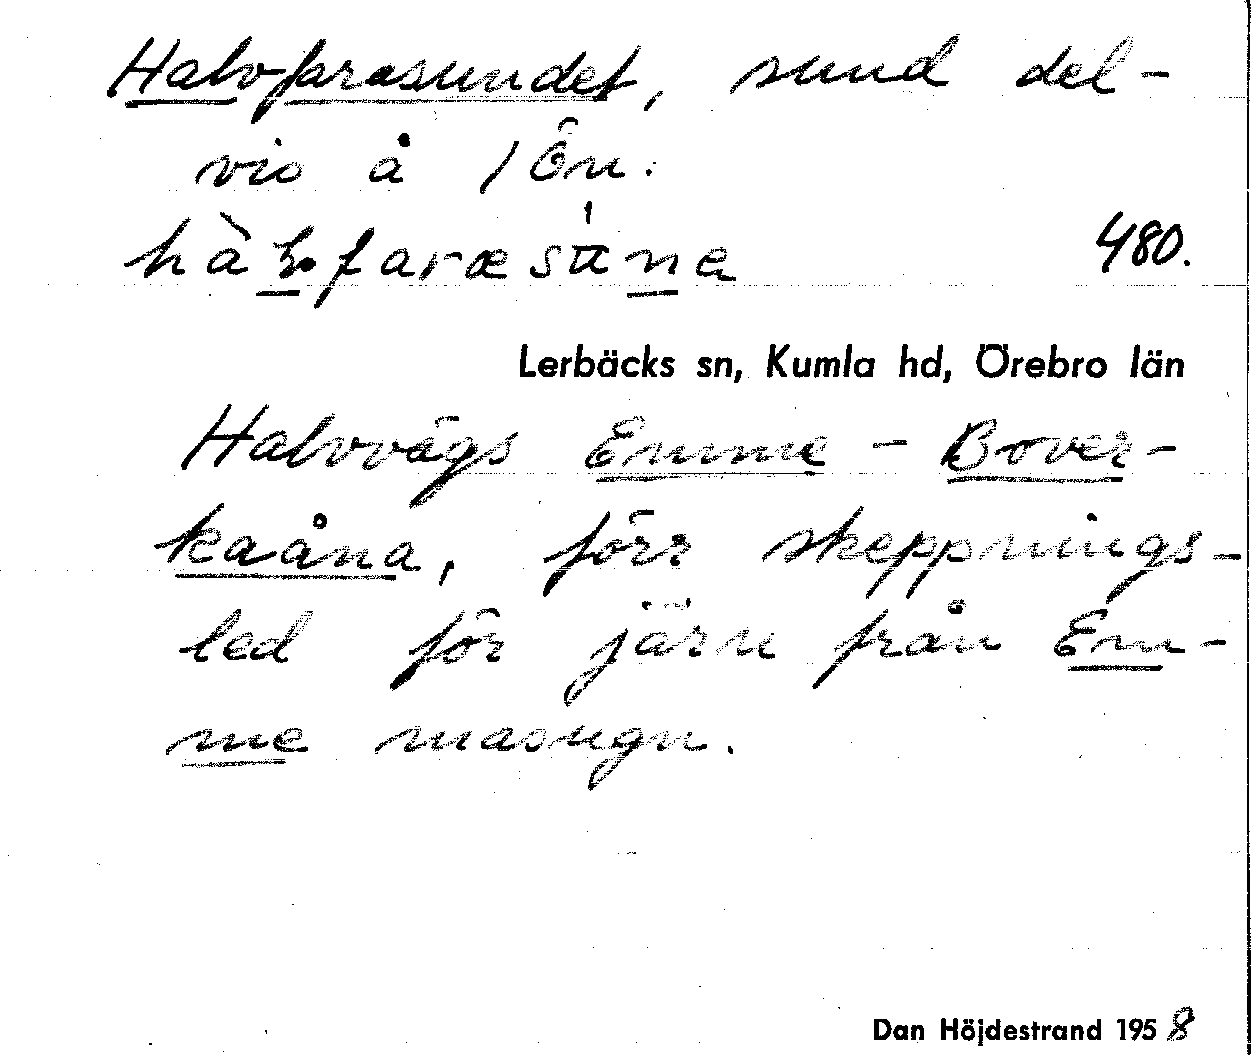 Halvfarasundet, sund del-
vis å 1 Ön:
480.
Lerbäcks sn, Kumla hd, Örebro län
Halvvägs Emme - Bover-
kaåna, förr skeppnings-
led för järn från Em-
me masugn.
Dan Höjdestrand 1958